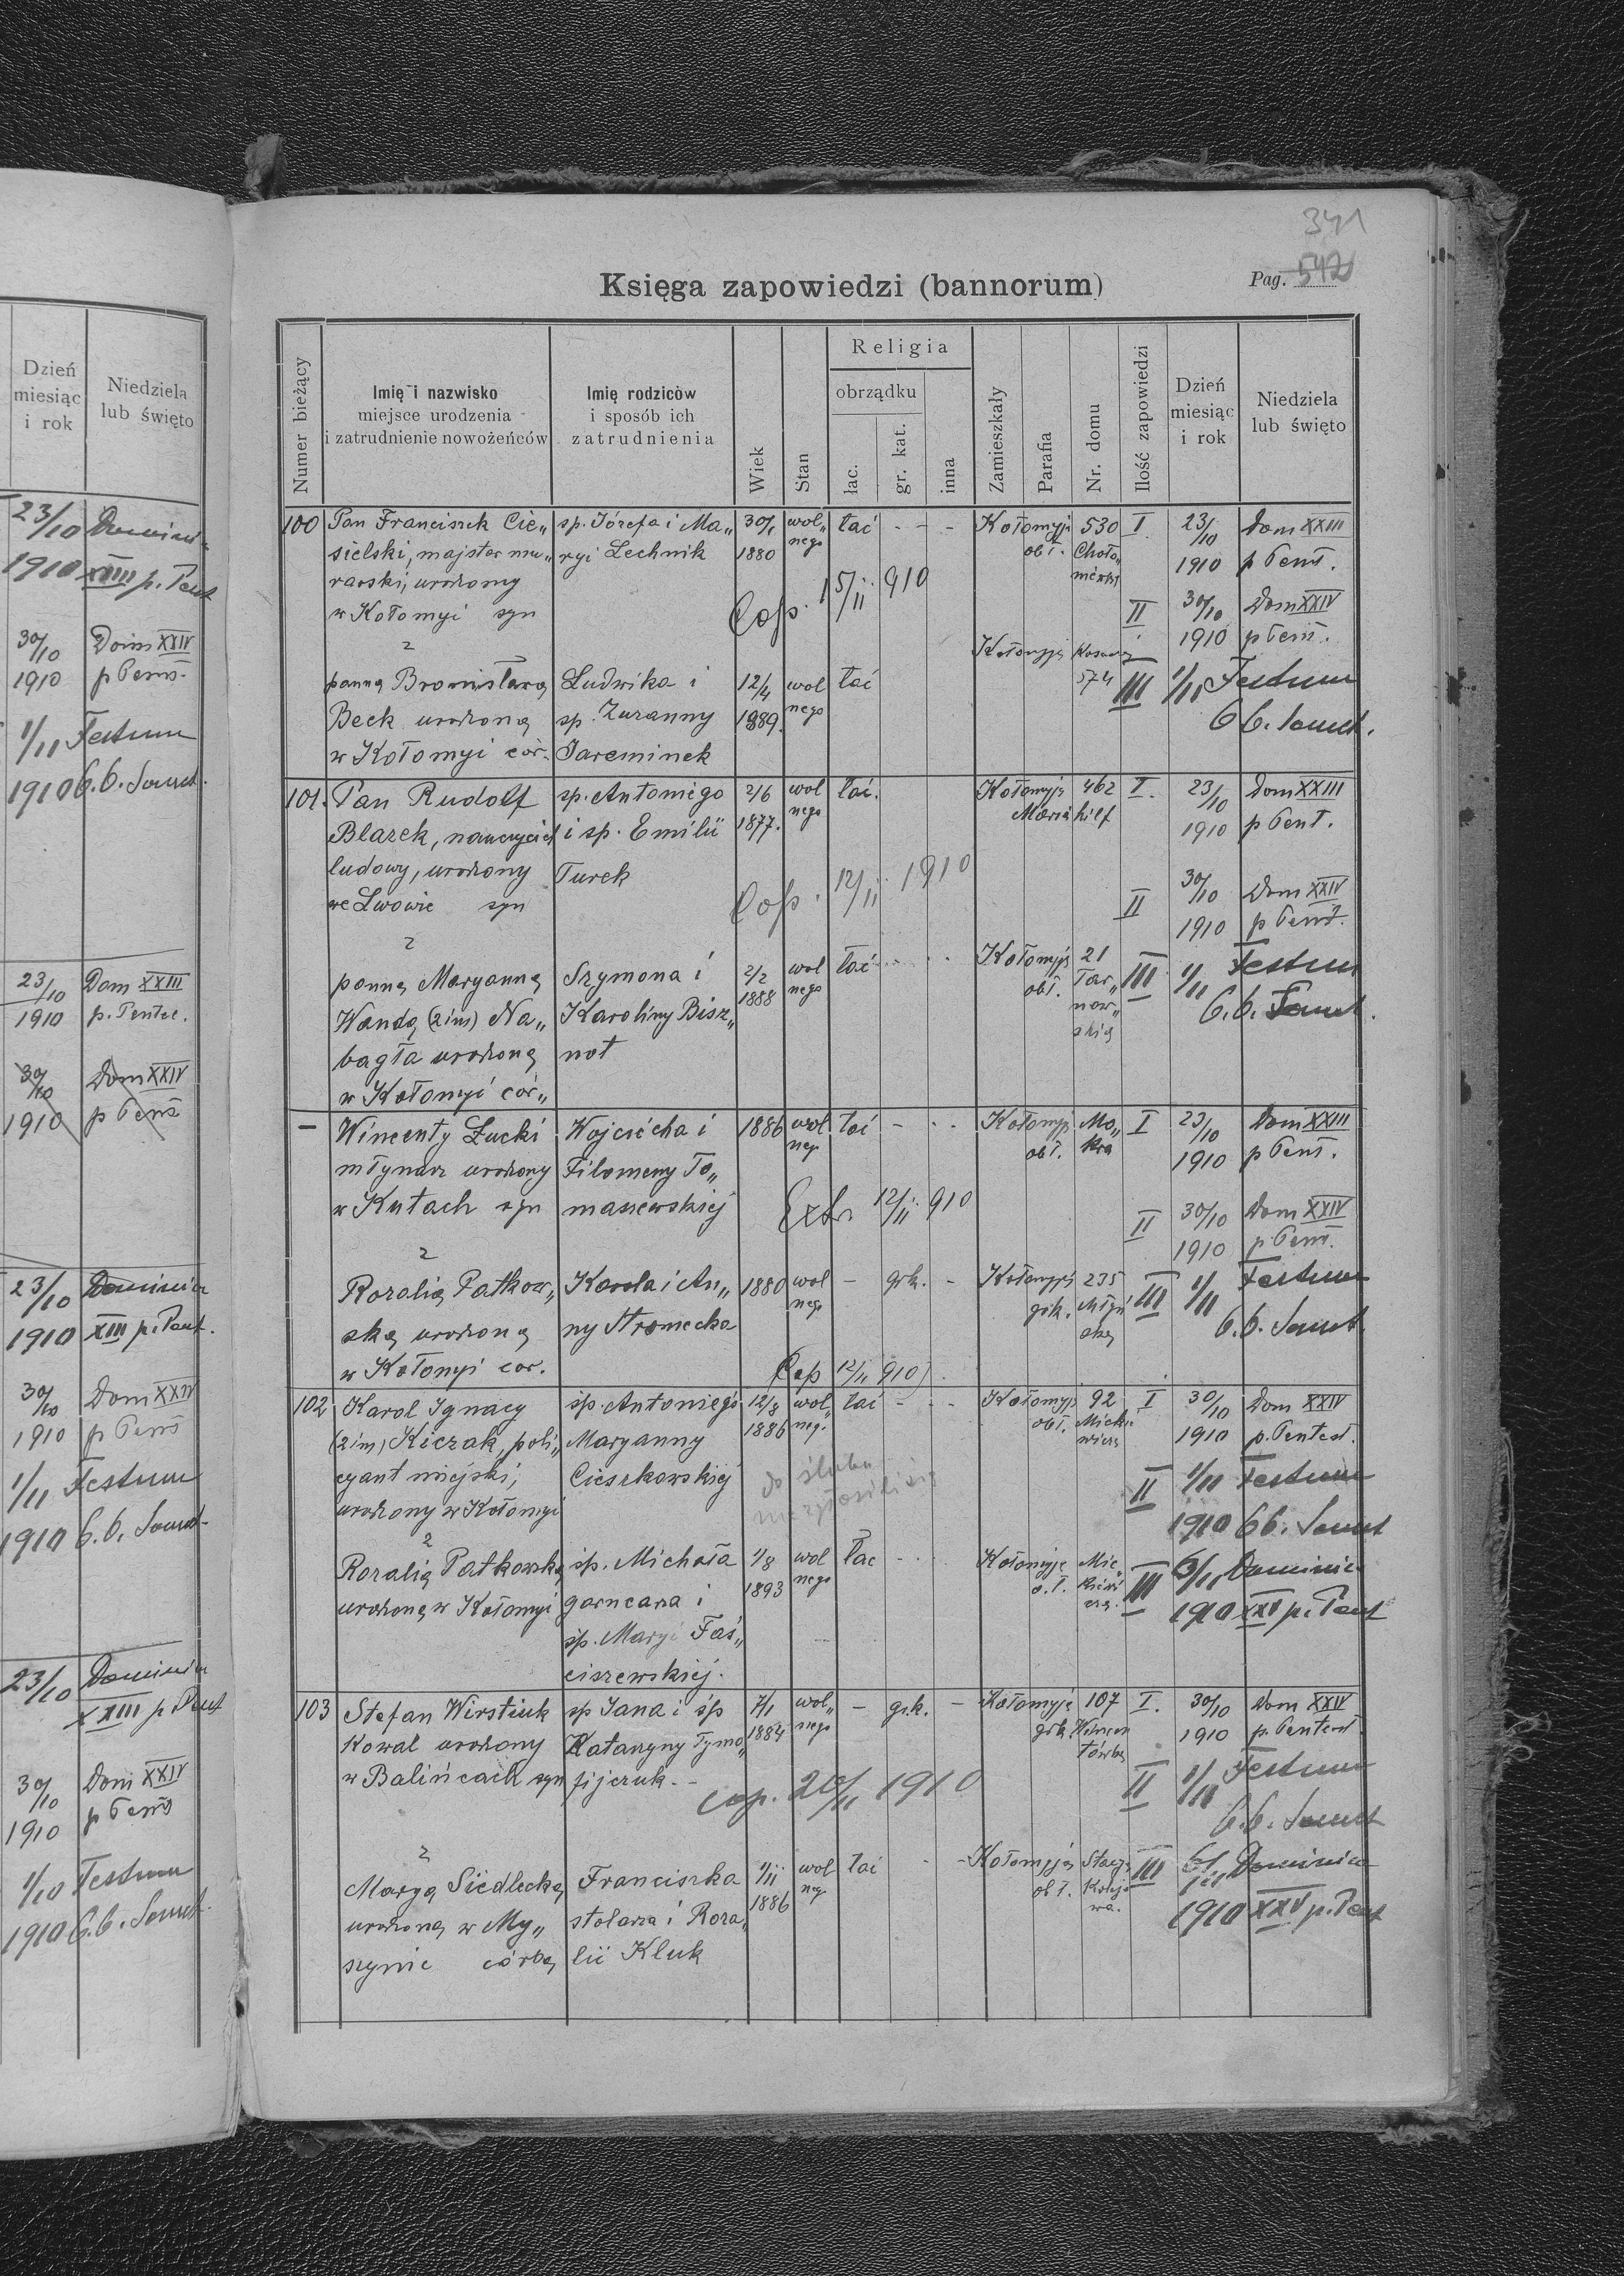 Dzień
miesiąc
i rok
Niedziela
lub święto
23/10 Dominica
1910 XXIII p. Pent
30/10 Dom XXIV
1910 p Pent.
1/11 Festum
1910 O.O. Sanct.
23/10 Dom XXIII
1910 p. Pentec.
30/10 Dom XXIV
1910 p Pent
23/10 Dominica
1910 XIII p. Pent.
30/10 Dom XXIV
1910 p Pent
1/11 Festum
1910 O.O. Sanct.
23/10 Dominica
XXIII p. Pent
30/10 Dom XXIV
1910 p Pent
1/10 Festum
1910 O.O. Sanct.
341
Księga zapowiedzi (bannorum)
Pag. 542
Numer bieżący
Imię i nazwisko
miejsce urodzenia
i zatrudnienie nowożeńców
Imię rodziców
i sposób ich
zatrudnienia
Wiek
Stan
Religia
obrządku
łac.
gr. kat.
inna
Zamieszkały
Parafia
Nr. domu
Ilość zapowiedzi
Dzień
miesiąc
i rok
Niedziela
lub święto
100 Pan Franciszek Cie„ sp. Józefa i Ma„ 30/1 wol„ łać - - - Kołomyja 530 I 23/10 Dom XXIII
sielski, majster mu„ ryi Lechnik 1880 nego ob ł. 1910 p Pent.
rarski, urodzony
w Kołomyi syn Cop. 15/11 910 II 30/10 Dom XXIV
z 1910 p Pent.
panną Bronisławą Ludwika i 12/4 wol łać Kołomyja 574 III 1/11 Festum
Beck urodzoną sp. Zuzanny 1889. nego O O. Sanct.
w Kołomyi cór. Jareminek
101. Pan Rudolf sp. Antoniego 2/6 wol łać. Kołomyja 462 I. 23/10 Dom XXIII
Blazek, nauczyciel i sp. Emilii 1877. nego Maria hilf 1910 p Pent.
ludowy, urodzony Turek
we Lwowie syn Cop. 12/11 1910 II 30/10 Dom XXIV
z 1910 p Pent.
panną Maryanną Szymona i 2/2 wol łać Kołomyja 21 III 1/11 Festum
Wandą (2 im) Na„ Karoliny Bisz„ 1888 nego ob ł. Tar„ O.O. Sanct.
bagła urodzoną not now„
w Kołomyi cór„ skią
— Wincenty Łucki Wojciecha i 1886 wol łać - . . Kołomyja Mo„ I 23/10 Dom XXIII
młynarz urodzony Filomeny To„ neg ob ł. kra 1910 p Pent.
w Kutach syn maszewskiej Extr. 12/11 910 II 30/10 Dom XXIV
z 1910 p Pent.
Rozalią Patkow„ Karola i An„ 1880 wol - grk. - Kołomyja 235 III 1/11 Festum
ską urodzoną ny Stromecka nego grk. O.O. Sanct.
w Kołomyi cor. Cop 12/11 910
102 Karol Ignacy śp. Antoniego 12/8 wol„ łać - . . Kołomyja 92 I 30/10 Dom XXIV
(2 im) Kiczak, poli„ Maryanny 1886 neg. ob ł. Micki wicza 1910 p. Pentest.
cyant miejski, Cieszkowskiej do ślubu II 1/11 Festum
urodzony w Kołomyi nie zgłosili się 1910 O O. Sanct
z
Rozalią Patkowską śp. Michała 1/8 wol łać - . . Kołomyja III 6/11 Dominica
urodzoną w Kołomyi garncarza i 1893 nego o. ł. 1910 XXV p. Pent
śp. Maryi Faś„
ciszewskiej.
103 Stefan Wirstiuk sp Jana i śp 7/1 wol„ - grk. - Kołomyja 107 I. 30/10 Dom XXIV
Kowal urodzony Katarzyny Tymo„ 1884 nego grk 1910 p. Pentest.
w Balińcach syn fijczuk. - cop. 20/11 1910 II 1/11 Festum
z O.O. Sanct
Maryą Siedlecką Franciszka 1/11 wol łać - - Kołomyja Stacy„ III 6/11 Dominica
urodzoną w My„ stolarza i Roza„ 1886 neg ob ł. Kolejo wa. 1910 XXV p. Pent
szynie córką lii Kluk